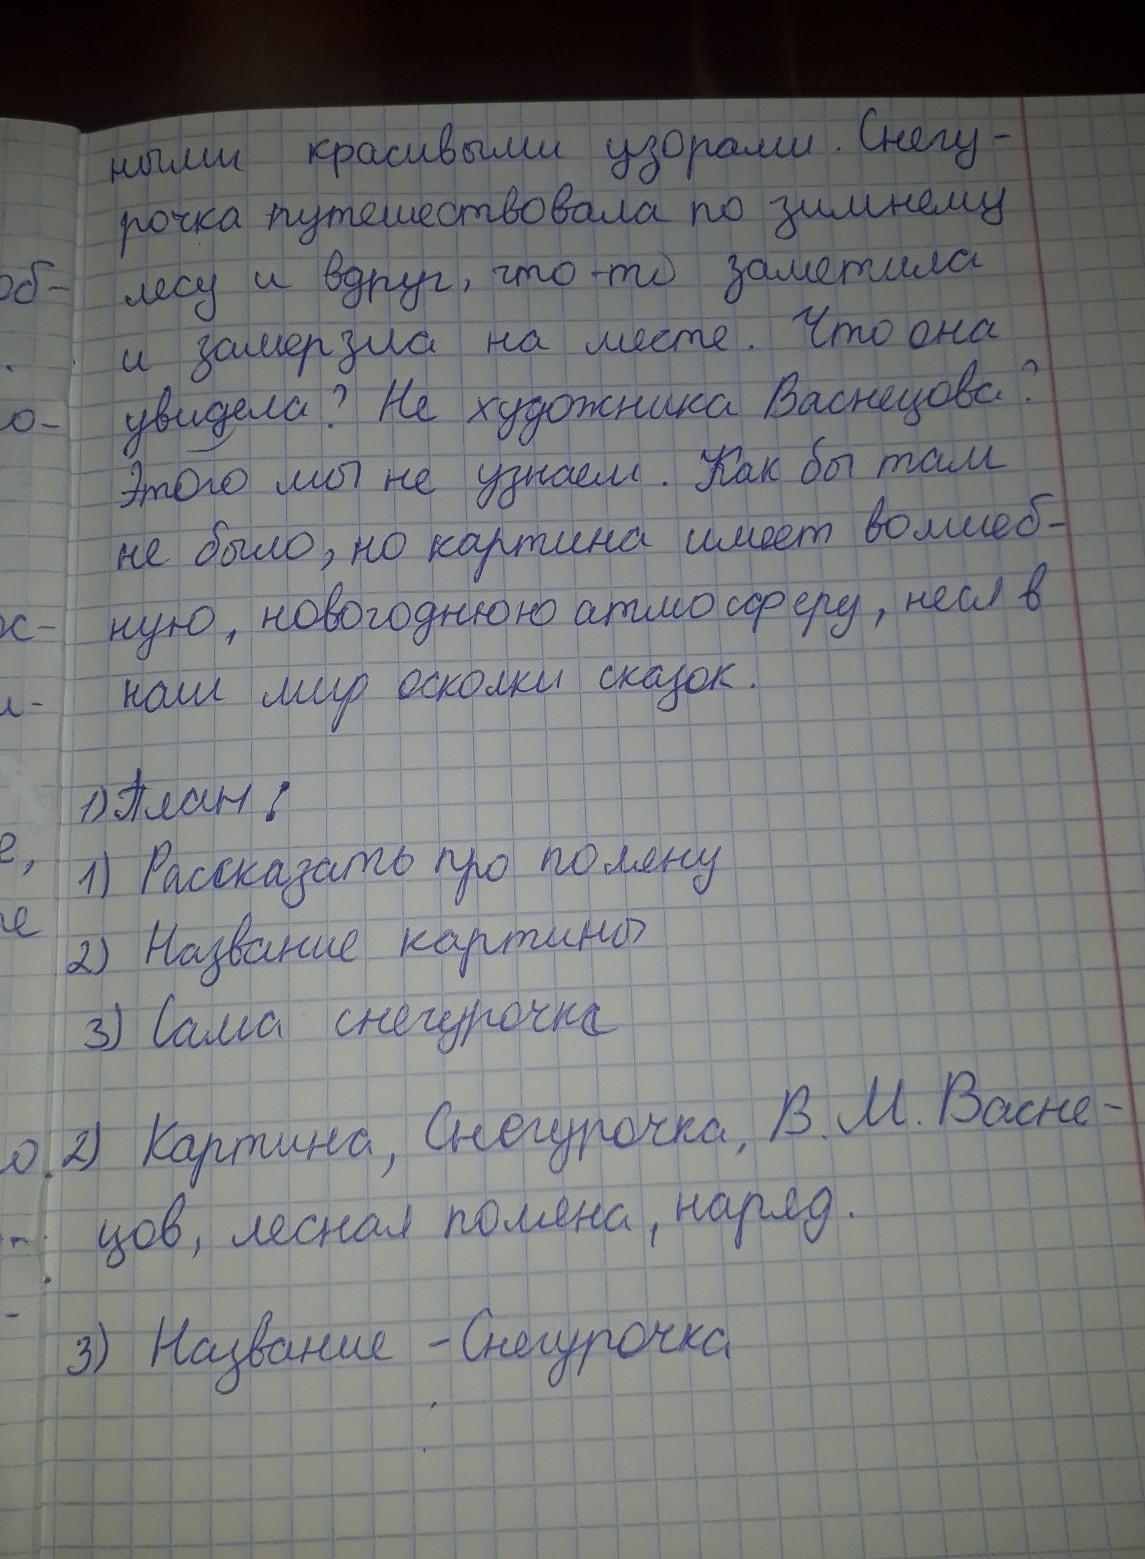 ными красивыми узорами. Снегу-
рочка путешествовала по зимнему
об- лесу и вдруг, что-то заметила
и замерзла на месте. Что она
о- увидела? Не художника Васнецова?
Этого мы не узнаем. Как бы там
не было, но картина имеет волшеб-
ную, новогоднюю атмосферу, неся в
наш мир осколки сказок.
1) План:
1) Рассказать про поляну
2) Название картины
3) Сама снегурочка
2) Картина, Снегурочка, В. М. Васне-
цов, лесная поляна, наряд.
3) Название - Снегурочка